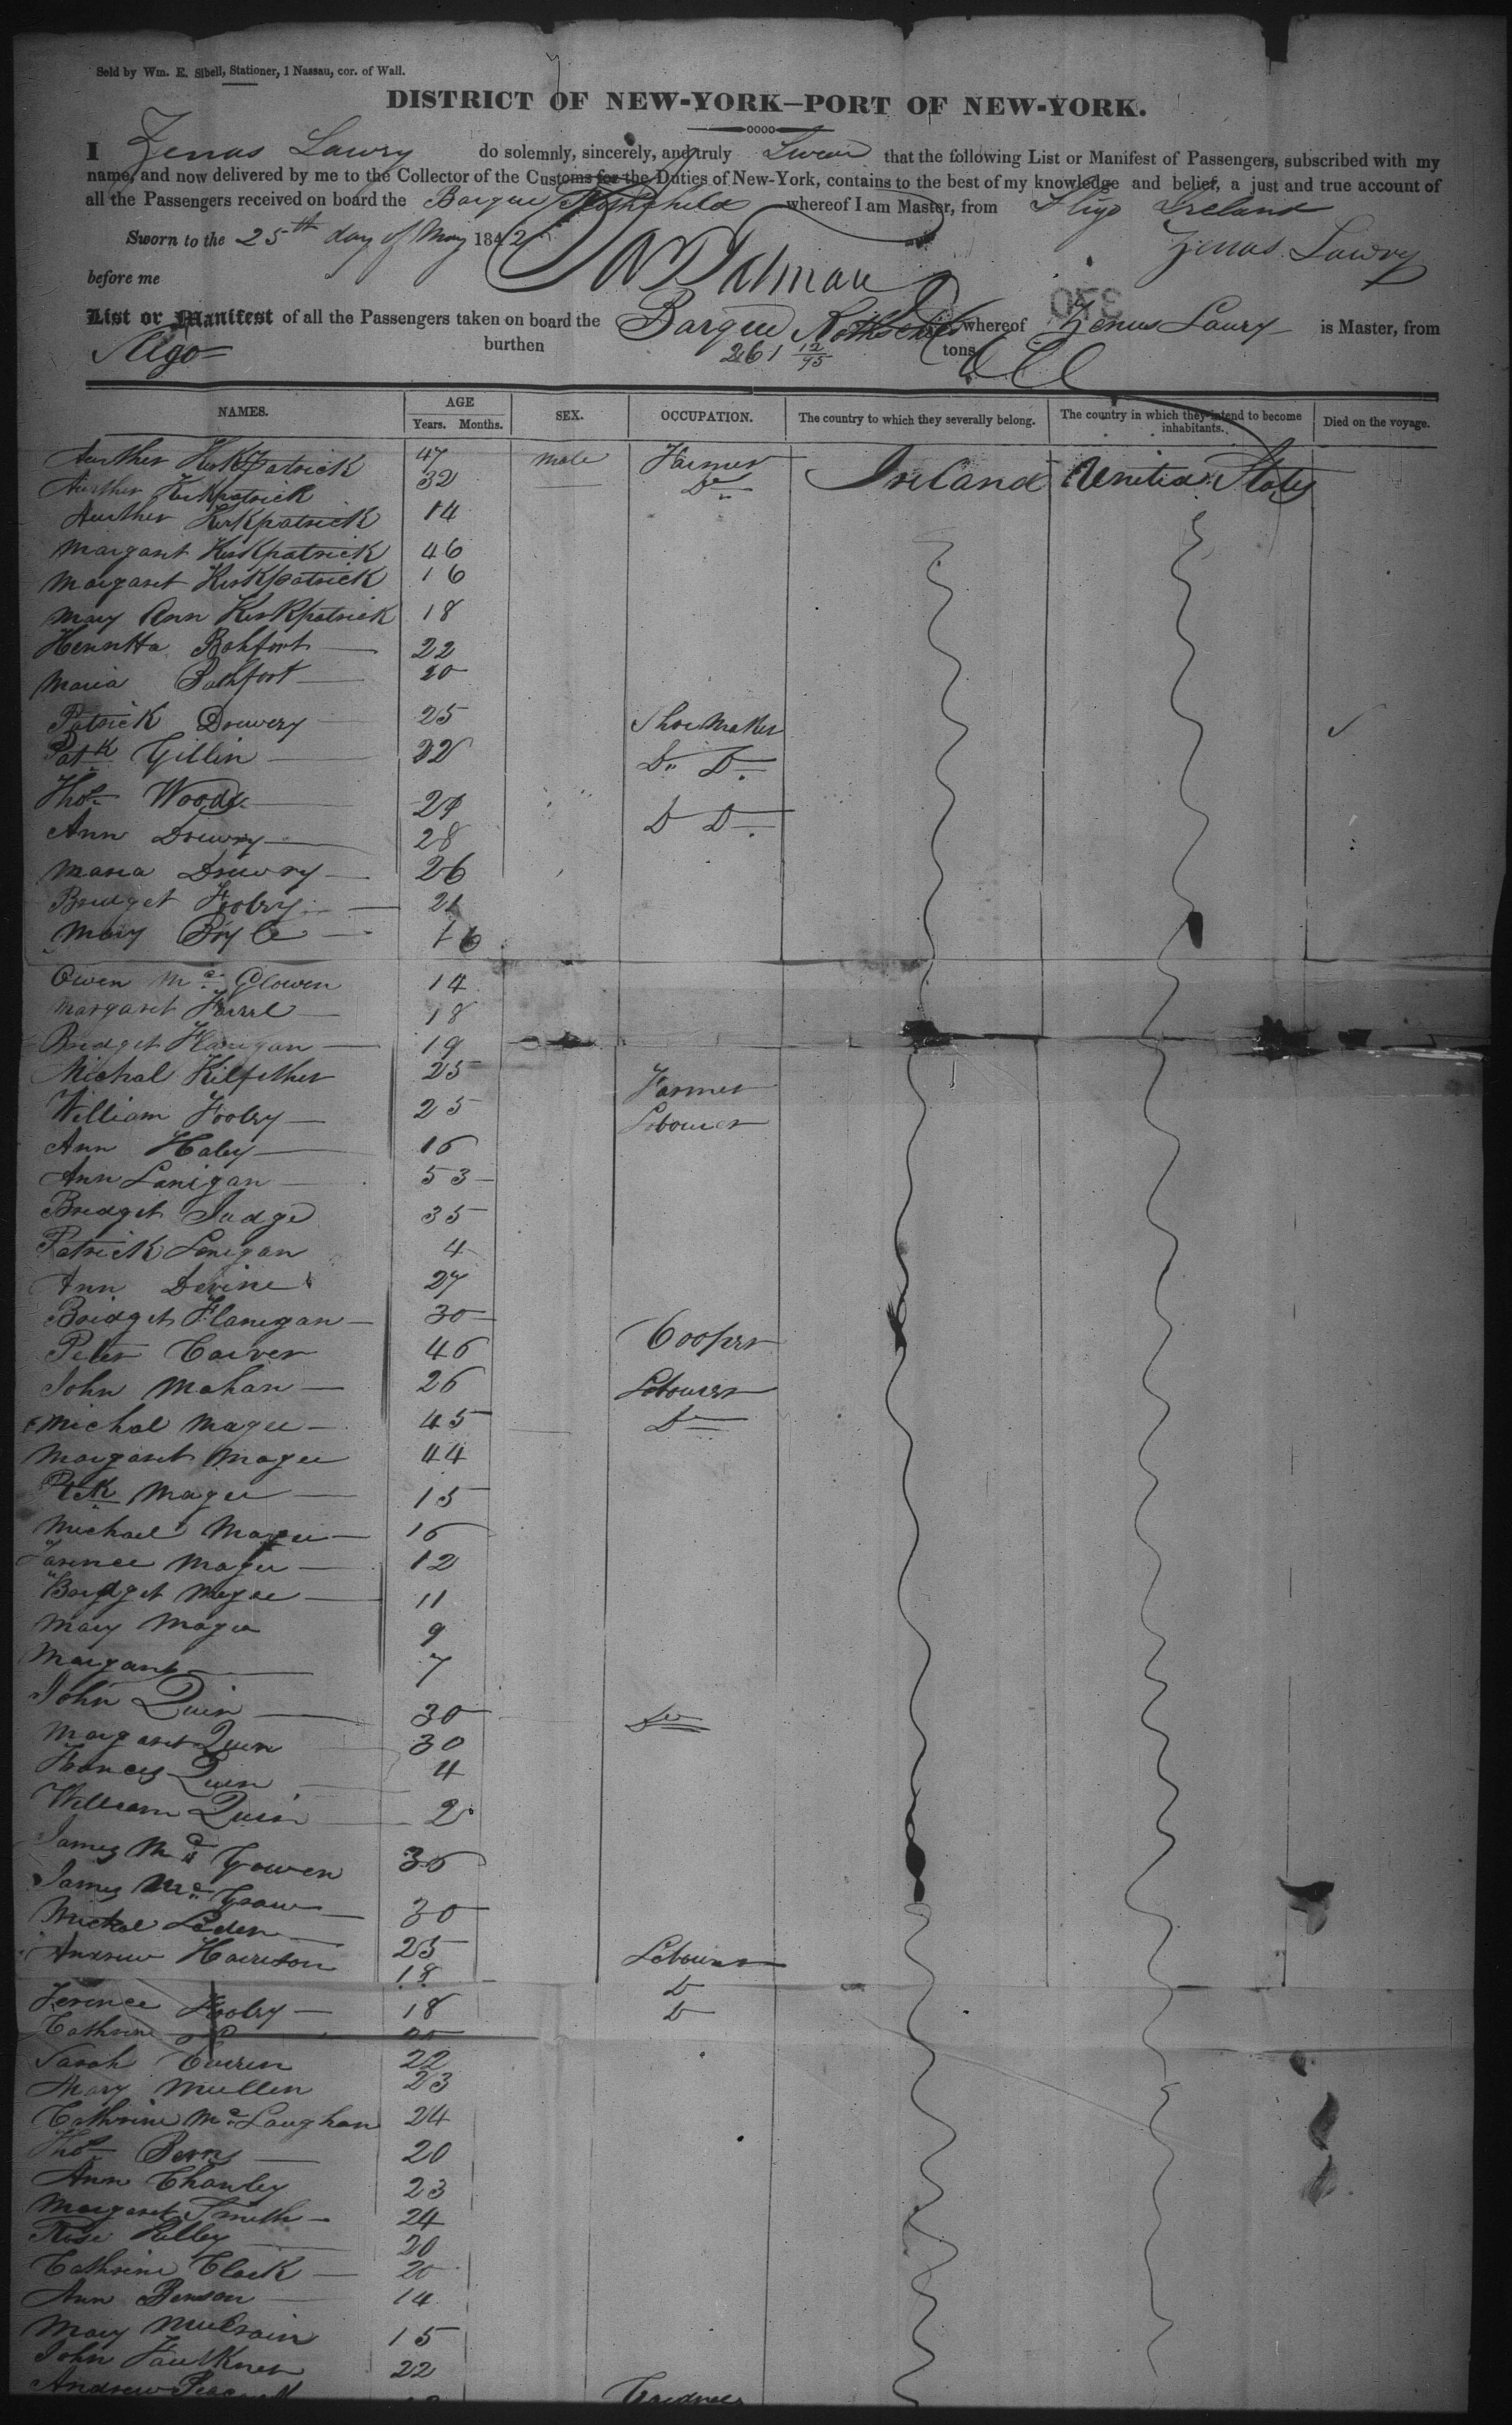 Sold by Wm. E. Sibell, Stationer, 1 Nassau, cor. of Wall.
DISTRICT OF NEW-YORK—PORT OF NEW-YORK.
I Zenas Lawry do solemnly, sincerely, and truly Swear that the following List or Manifest of Passengers, subscribed with my
name, and now delivered by me to the Collector of the Customs for the Duties of New-York, contains to the best of my knowledge and belief, a just and true account of
all the Passengers received on board the Barque Rothschild whereof I am Master, from Sligo Ireland
Sworn to the 25th day of May 1842 Zenas Lawry
before me
List or Manifest of all the Passengers taken on board the Barque Rothschild whereof Zenas Lawry is Master, from
Sligo burthen 261 12/95 tons
NAMES. AGE SEX. OCCUPATION. The country to which they severally belong. The country in which they intend to become inhabitants. Died on the voyage.
Years. Months.
Aurther Kirkpatrick 47 male Farmer Ireland United States
Aurther Kirkpatrick 32 Do
Aurther Kirkpatrick 14
Margaret Kirkpatrick 46
Margaret Kirkpatrick 16
Mary Ann Kirkpatrick 18
Henritta 22
Maria 20
Patrick Drewery 25 Shoe Maker
Patk Gillin 22 Do Do
Thos Woods D D
Ann Drewry 28
Maria Drewry 26
Bridget Fooley 21
Mary Boyle 16
Owen Mc Glowen 14
Margaret 18
Bridget Flanigan 19
Michal Kilfether 25 Farmer
William Fooley 25 Labourer
Ann Haley 16
Ann Lanigan 53
Bridget Judge 35
Patrick Lanigan 4
Ann Devine 27
Bridget Flanigan 30
Peter Carver 46 Cooper
John Mahan 26 Labourer
Michal Magee 45 Do
Margaret Magee 44
Patk Magee 15
Michael Magee 16
Tarence Magee 12
Bridget Magee 11
Mary Magee 9
Margaret 7
John Quin 30 Do
Margaret Quin 30
Frances Quin 4
William Quin 2
James Mc Gowen 36
James Mc Graw 30
Michal Leden 25
Andrew Harrison 18 Labourer
D
Terence Fooley 18 D
Cathrine
Sarah 22
Mary Mullen 23
Cathrine McLaughan 24
Thos Berns 20
Ann Chanley 23
Margaret Smith 24
Rose 20
Cathrine Clark 20
Ann Benson 14
Mary 15
John Faulkner 22
Andrew